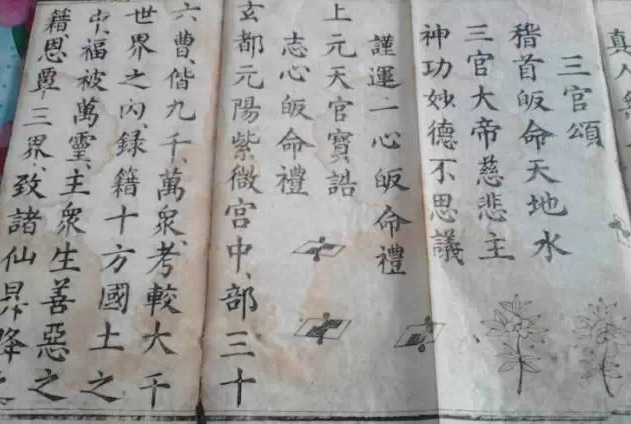 真人無
三官頌
稽首皈命天地水
三官大帝慈悲主
神功妙德不思議
謹運一心皈命禮
上元天官寶誥
志心皈命禮
玄都元陽紫微宮中、部三十
六曹、偕九千、萬衆、考較大千
世界之內、錄籍十方國土之
中、福被萬靈、主衆生善惡之
籍、恩覃三界、致諸仙昇降之